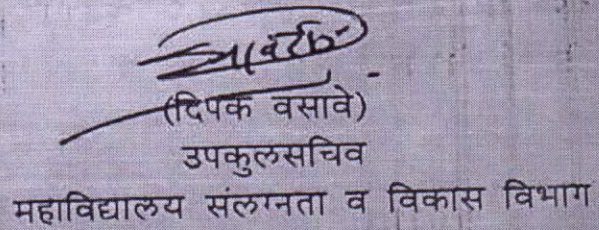 (दिपक वसावे)
उपकुलसचिव
महाविद्यालय संलग्नता व विकास विभाग